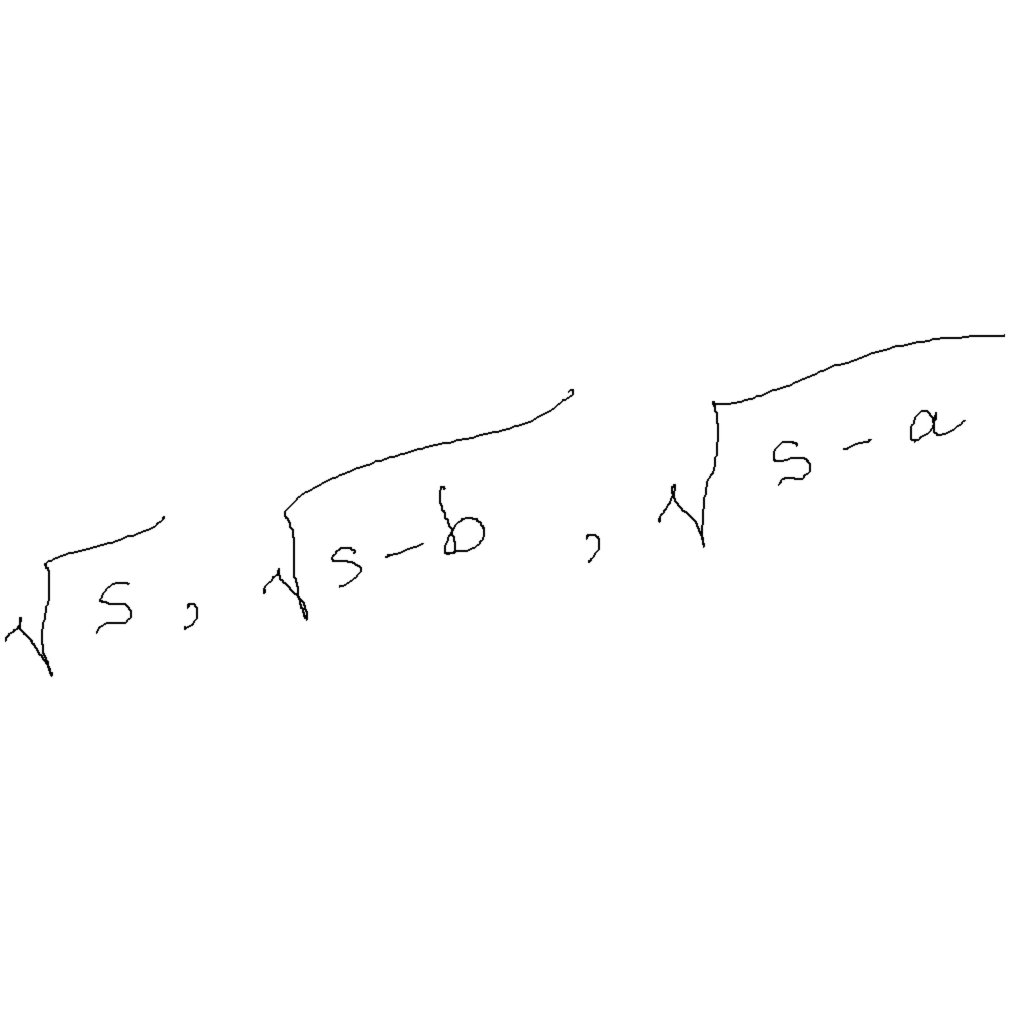 √s, √(s-b), √(s-a)